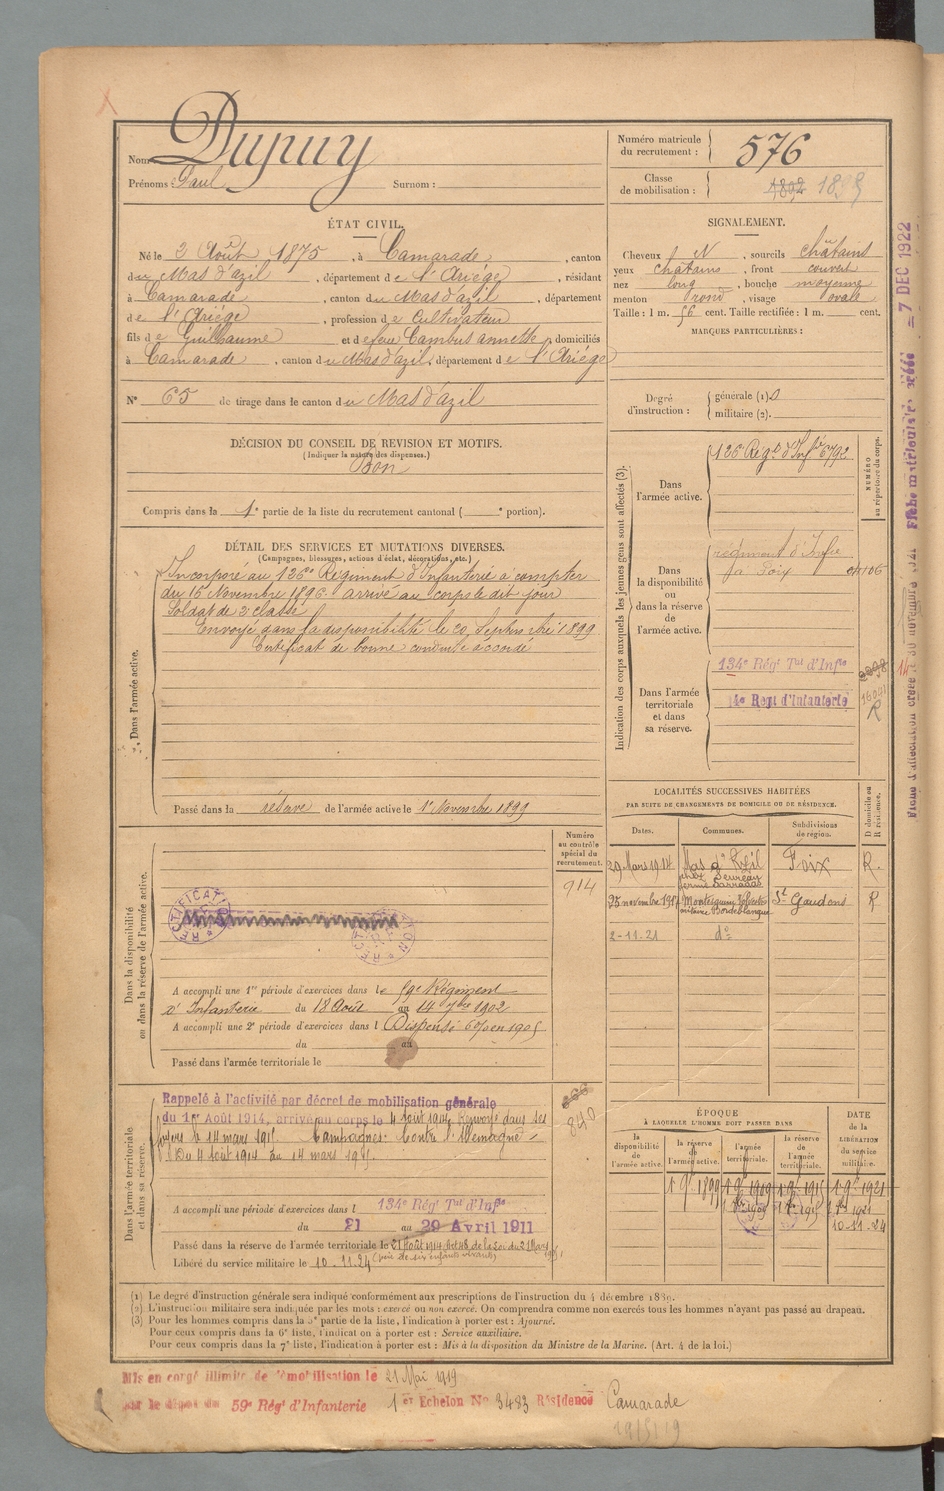 Nom: Dupuy
Prénoms: Paul Surnom :
Numéro matricule du recrutement : 576
Classe de mobilisation :
ÉTAT CIVIL.
Né le 2 Août 1875, à Camarade, canton
du Mas d'azil, département de l'Ariége, résidant
à Camarade, canton du Mas d'azil, département
de l'Ariége, profession de Cultivateur
fils de Guillaume et de feue Cambus annette, domiciliés
à Camarade, canton du Mas d'azil, département de l'Ariége
N° 65 de tirage dans le canton du Mas d'azil
SIGNALEMENT.
Cheveux N, sourcils châtains
yeux châtains, front couvert
nez long, bouche moyenne
menton rond, visage ovale
Taille : 1 m. 56 cent. Taille rectifiée : 1 m. cent.
MARQUES PARTICULIÈRES :
Degré d'instruction :
générale (1)
militaire (2).
DÉCISION DU CONSEIL DE REVISION ET MOTIFS.
(Indiquer la nature des dispenses.)
Bon
Compris dans la 1e partie de la liste du recrutement cantonal ( e portion).
DÉTAIL DES SERVICES ET MUTATIONS DIVERSES.
(Campagnes, blessures, actions d'éclat, décorations, etc.)
Dans l'armée active.
Incorporé au 126e Régiment d'Infanterie à compter
du 16 Novembre 1896. arrivé au corps le dit jour
Soldat de 2e classe
Envoyé dans la disponibilité le 20 Septembre 1899
Certificat de bonne conduite accordé
Passé dans la réserve de l'armée active le 1er Novembre 1899
Indication des corps auxquels les jeunes gens sont affectés (3).
NUMÉRO au répertoire du corps.
Dans l'armée active.
126e Régt d'Infie 6792
Dans la disponibilité ou dans la réserve de l'armée active.
régiment d'Infie
de Foix
Dans l'armée territoriale et dans sa réserve.
134e Régt Tal d'Infie
14e Regt d'Infanterie
R
LOCALITÉS SUCCESSIVES HABITÉES
PAR SUITE DE CHANGEMENTS DE DOMICILE OU DE RÉSIDENCE.
Dates. Communes. Subdivisions de région. D domicile ou R résidence.
29 Mars 1914 Mas d'Azil Foix R.
25 novembre 1917 Montesquieu Volvestre St Gaudens R
2-11-21 do
Dans la disponibilité ou dans la réserve de l'armée active.
Numéro au contrôle spécial du recrutement.
914
RECTIFICATION
RECTIFICATION
A accompli une 1re période d'exercices dans le 59e Régiment
d'Infanterie du 18 Août au 14 7bre 1902
A accompli une 2e période d'exercices dans l Dispensé 6% en 1905
du au
Passé dans l'armée territoriale le
Dans l'armée territoriale et dans sa réserve.
Rappelé à l'activité par décret de mobilisation générale
du 1er Août 1914, arrivé au corps le 4 août 1914. Renvoyé dans ses
foyers le 14 mars 1915. Campagnes: Contre l'Allemagne -
Du 4 août 1914 au 14 mars 1915.
840
A accompli une période d'exercices dans l 134e Régt Tal d'Infie
du 21 au 29 Avril 1911
Passé dans la réserve de l'armée territoriale le 21 Août 1914 Art 48 de la loi du 21 Mars 1905
(père de six enfants vivants)
Libéré du service militaire le 10-11-24
ÉPOQUE
À LAQUELLE L'HOMME DOIT PASSER DANS
la disponibilité de l'armée active. la réserve de l'armée active. l'armée territoriale. la réserve de l'armée territoriale. DATE de la LIBÉRATION du service militaire.
1 9bre 1899 1 9bre 1909 1 9bre 1915 1 9bre 1921
10-11-24
(1) Le degré d'instruction générale sera indiqué conformément aux prescriptions de l'instruction du 4 décembre 1889.
(2) L'instruction militaire sera indiquée par les mots : exercé ou non exercé. On comprendra comme non exercés tous les hommes n'ayant pas passé au drapeau.
(3) Pour les hommes compris dans la 5e partie de la liste, l'indication à porter est : Ajourné.
Pour ceux compris dans la 6e liste, l'indication à porter est : Service auxiliaire.
Pour ceux compris dans la 7e liste, l'indication à porter est : Mis à la disposition du Ministre de la Marine. (Art. 4 de la loi.)
Mis en congé illimité de démobilisation le 21 Mai 1919
par le dépot du 59e Régt d'Infanterie 1er Echelon No 3483 Résidence Camarade
19/5/19
- 7 DEC 1922